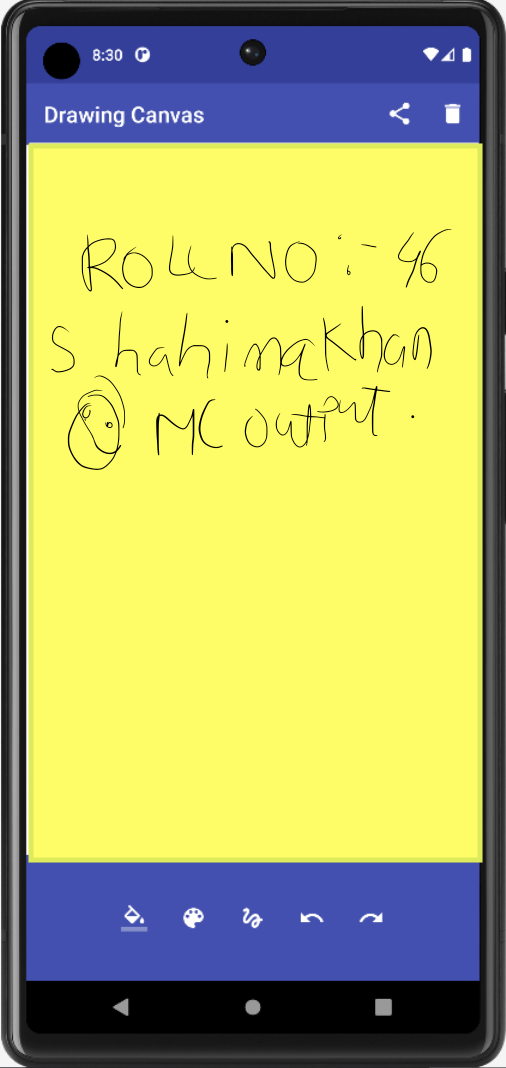 8:30
Drawing Canvas
ROLL NO :- 46
Shahima Khan
MC output.